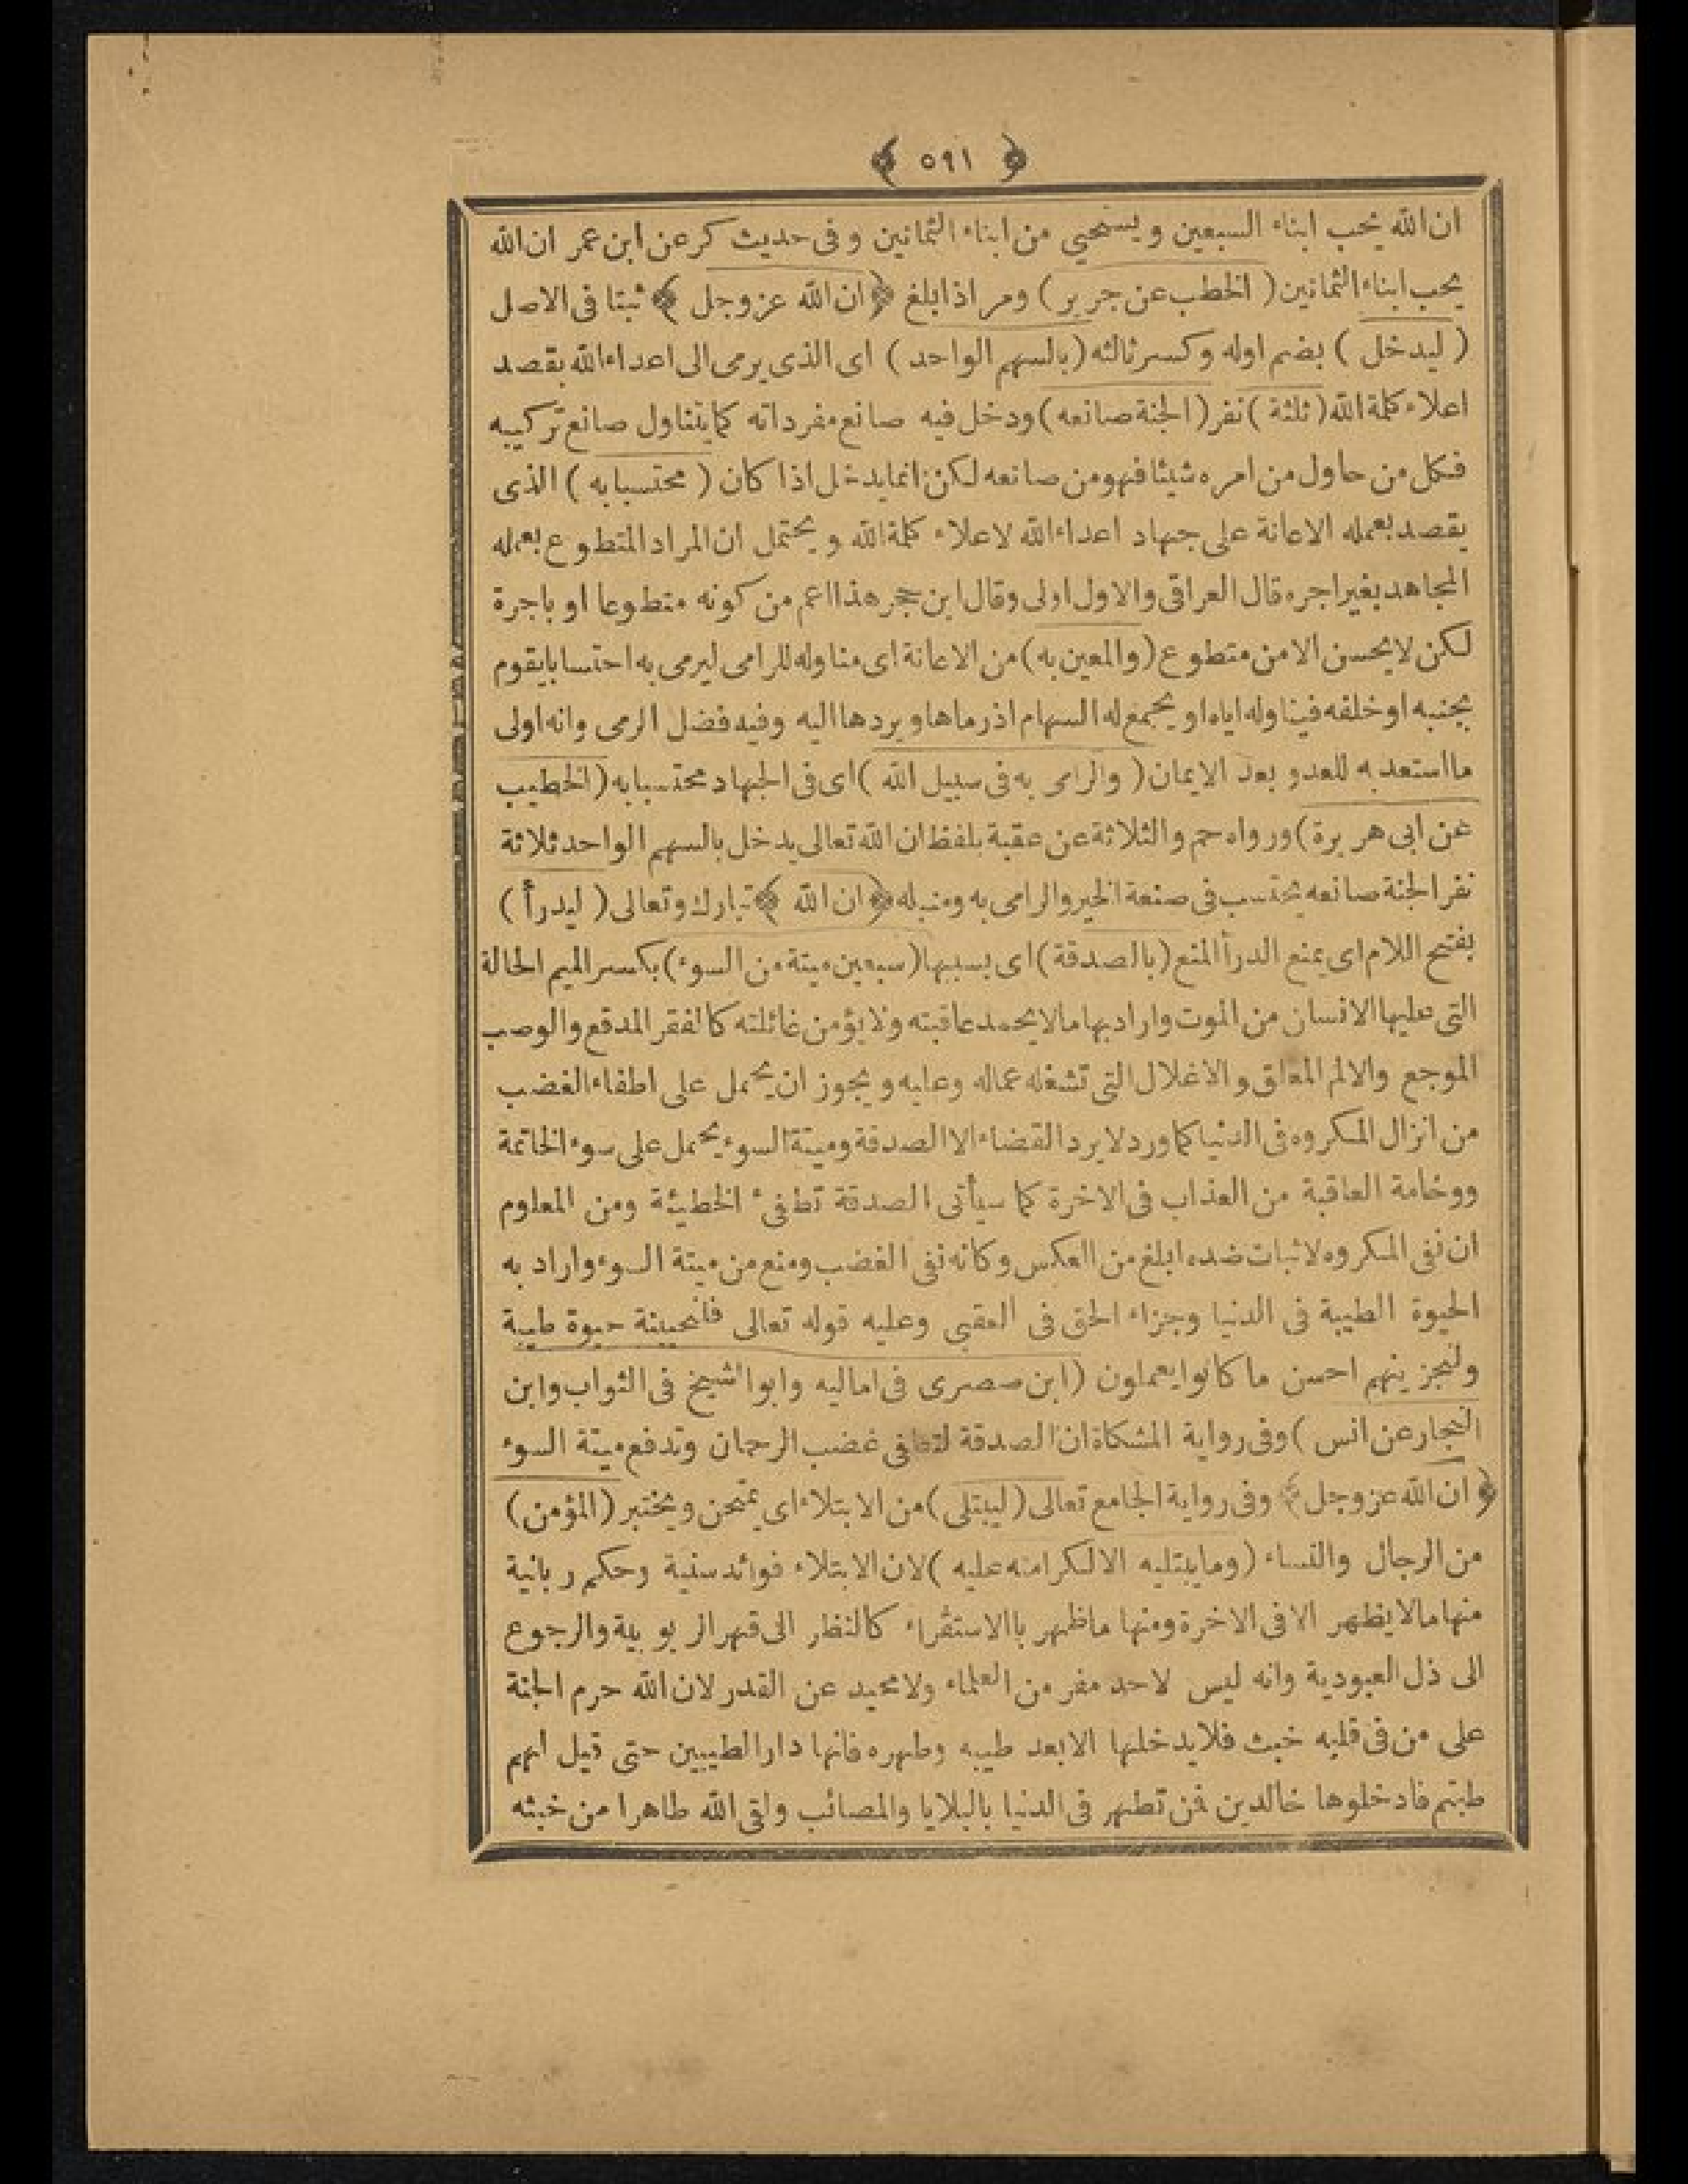 ﴿ ٥٩١ ﴾
ان الله يحب ابناء السبعين ويستحيي من ابناء الثمانين وفى حديث كر عن ابن عمر ان الله
يحب ابناء الثمانين ( الخطب عن جرير ) ومر اذا بلغ ﴿ ان الله عز وجل ﴾ ثبتا فى الاصل
( ليدخل ) بضم اوله وكسر ثالثه ( بالسهم الواحد ) اى الذى يرمى الى اعداء الله بقصد
اعلاء كلمة الله ( ثلثة ) نفر ( الجنة صانعه ) ودخل فيه صانع مفرداته كما يتناول صانع تركيبه
فكل من حاول من امره شيئا فهو من صانعه لكن انما يدخل اذا كان ( محتسبا به ) الذى
يقصد بعمله الاعانة على جهاد اعداء الله لاعلاء كلمة الله ويحتمل ان المراد المتطوع بعمله
المجاهد بغير اجره قال العراقى والاول اولى وقال ابن حجر هذا اعم من كونه متطوعا او باجرة
لكن لا يحسن الا من متطوع ( والمعين به ) من الاعانة اى مناوله للرامى ليرمى به احتسابا يقوم
بجنبه او خلفه فيناوله اياه او يجمع له السهام اذ رماها ويردها اليه وفيه فضل الرمى وانه اولى
ما استعد به للعدو بعد الايمان ( والرامى به فى سبيل الله ) اى فى الجهاد محتسبا به ( الخطيب
عن ابى هريرة ) ورواه حم والثلاثة عن عقبة بلفظ ان الله تعالى يدخل بالسهم الواحد ثلاثة
نفر الجنة صانعه يحتسب فى صنعة الخير والرامى به ومنبله ﴿ ان الله ﴾ تبارك وتعالى ( ليدرأ )
بفتح اللام اى يمنع الدرأ المنع ( بالصدقة ) اى بسببها ( سبعين ميتة من السوء ) بكسر الميم الحالة
التى عليها الانسان من الموت واراد بها ما لا يحمد عاقبته ولا يؤمن غائلته كالفقر المدقع والوصب
الموجع والالم المقلق والاغلال التى تشغله عماله وعليه ويجوز ان يحمل على اطفاء الغضب
من انزال المكروه فى الدنيا كما ورد لا يرد القضاء الا الصدقة وميتة السوء يحمل على سوء الخاتمة
ووخامة العاقبة من العذاب فى الاخرة كما سيأتى الصدقة تطفئ الخطيئة ومن المعلوم
ان نفى المكروه لاثبات ضده ابلغ من العكس وكانه نفى الغضب ومنع من ميتة السوء واراد به
الحيوة الطيبة فى الدنيا وجزاء الحق فى العقبى وعليه قوله تعالى فلنحيينه حيوة طيبة
ولنجزينهم احسن ما كانوا يعملون ( ابن صصرى فى اماليه وابوا الشيخ فى الثواب وابن
النجار عن انس ) وفى رواية المشكاة ان الصدقة لتطفى غضب الرحمان وتدفع ميتة السوء
﴿ ان الله عز وجل ﴾ وفى رواية الجامع تعالى ( ليبتلى ) من الابتلاء اى يمتحن ويختبر ( المؤمن )
من الرجال والنساء ( وما يبتليه الا لكرامته عليه ) لان الابتلاء فوائد سنية وحكم ربانية
منها ما لا يظهر الا فى الاخرة ومنها ما ظهر باالاستقراء كالنظر الى قهر الربوبية والرجوع
الى ذل العبودية وانه ليس لاحد مفر من العلماء ولا محيد عن القدر لان الله حرم الجنة
على من فى قلبه خبث فلا يدخلها الا بعد طيبه وطهره فانها دار الطيبين حتى قيل لهم
طبتم فادخلوها خالدين فمن تطهر فى الدنيا بالبلايا والمصائب ولقى الله طاهرا من خبثه